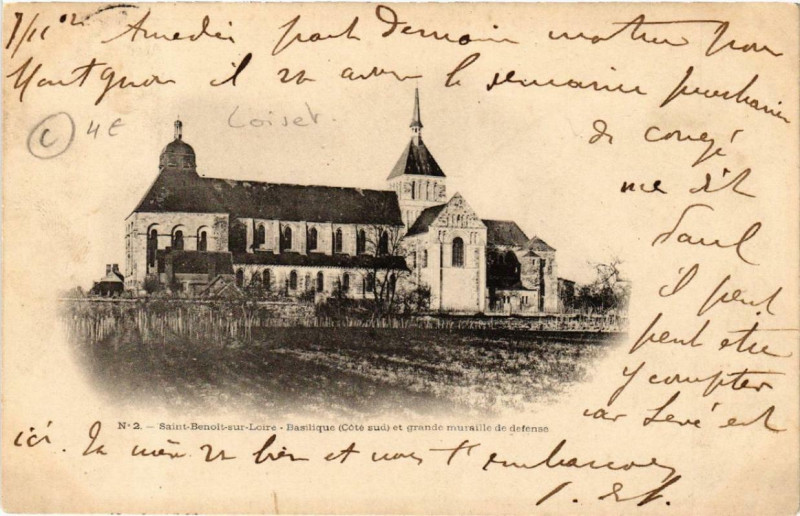 7/11 02 Amedée part demain matin pour
Montgnon il va avoir la semaine prochaine
de congé
me dit
Paul
il peut
peut etre
y compter
car Sevé est
ici. Ta mère va bien et nous t'embrassons
Loiret.
4€
N° 2. — Saint-Benoît-sur-Loire - Basilique (Côté sud) et grande muraille de defense